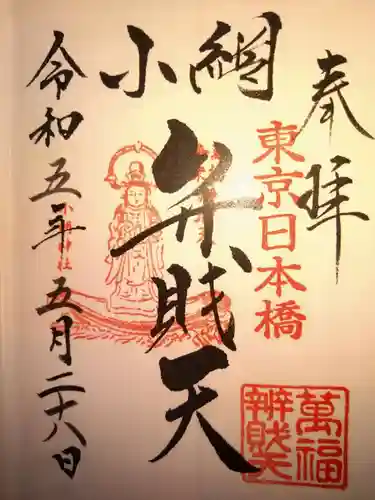 奉拝
東京日本橋
小網
弁賎天
令和五年五月二十八日
小網神社
萬福
辨財天